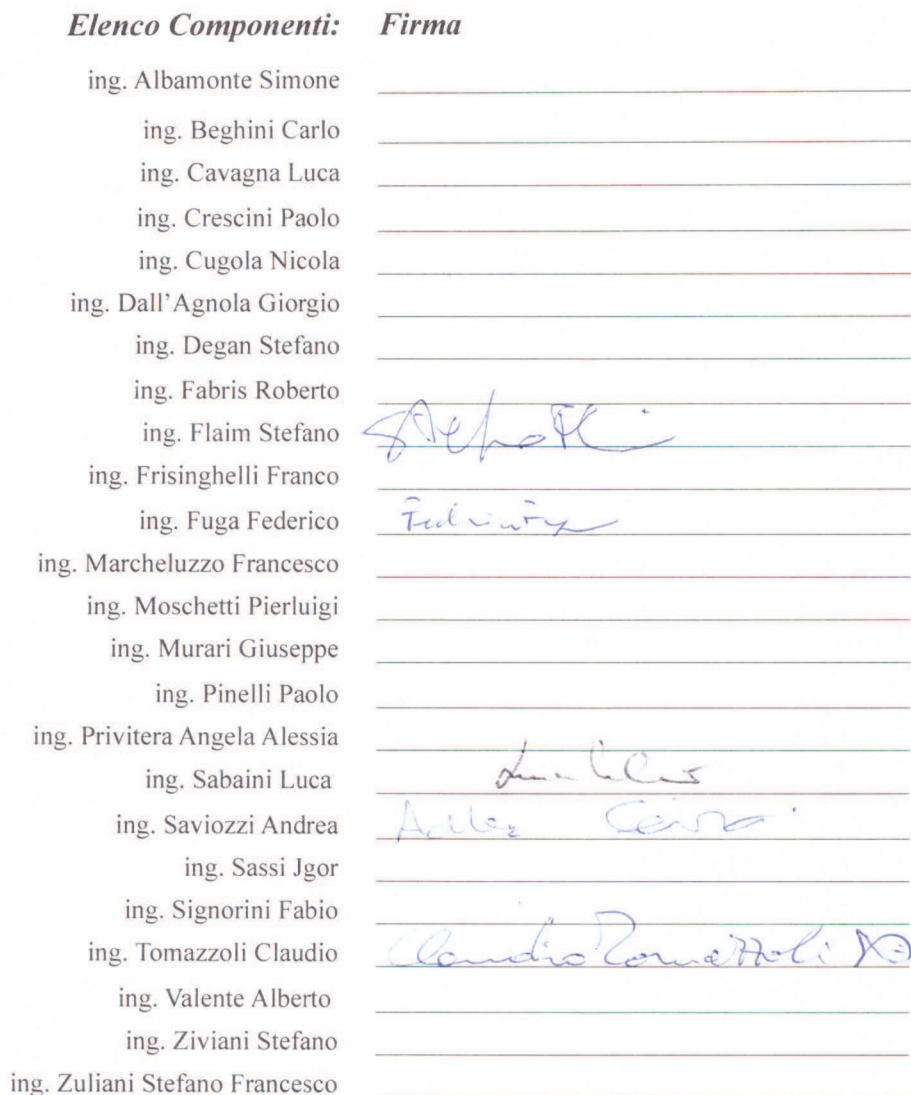 Elenco Componenti: Firma
ing. Albamonte Simone
ing. Beghini Carlo
ing. Cavagna Luca
ing. Crescini Paolo
ing. Cugola Nicola
ing. Dall'Agnola Giorgio
ing. Degan Stefano
ing. Fabris Roberto
ing. Flaim Stefano
ing. Frisinghelli Franco
ing. Fuga Federico
ing. Marcheluzzo Francesco
ing. Moschetti Pierluigi
ing. Murari Giuseppe
ing. Pinelli Paolo
ing. Privitera Angela Alessia
ing. Sabaini Luca
ing. Saviozzi Andrea
ing. Sassi Jgor
ing. Signorini Fabio
ing. Tomazzoli Claudio Claudio Tomazzoli
ing. Valente Alberto
ing. Ziviani Stefano
ing. Zuliani Stefano Francesco